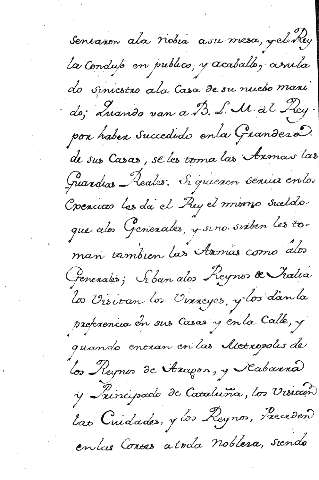 sentaron ala Nobia asu mesa, y el Rey
la Condujo en publico, y acaballo, asu la
do siniestro ala Casa de su nuebo mari
do; Quando van a B. L. M. al Rey
por haber Succedido en la Grandeza
de sus Casas, se les toma las Armas las
Guardias Reales. Si quieren servir en los
Exercitos les dá el Rey el mismo sueldo
que alos Generales, y sino sirben les to-
man tambien las Armas como álos
Generales; Siban alos Reynos de Italia
los Visitan los Virreyes, y los dán la
preferencia en sus Casas y en la Calle, y
quando entran en las Metropolis de
los Reynos de Aragon, y Nabarra
y Principado de Cataluña, los Visitan
las Cuidades, y los Reynos, Preceden
en las Cortes atoda Nobleza, siendo